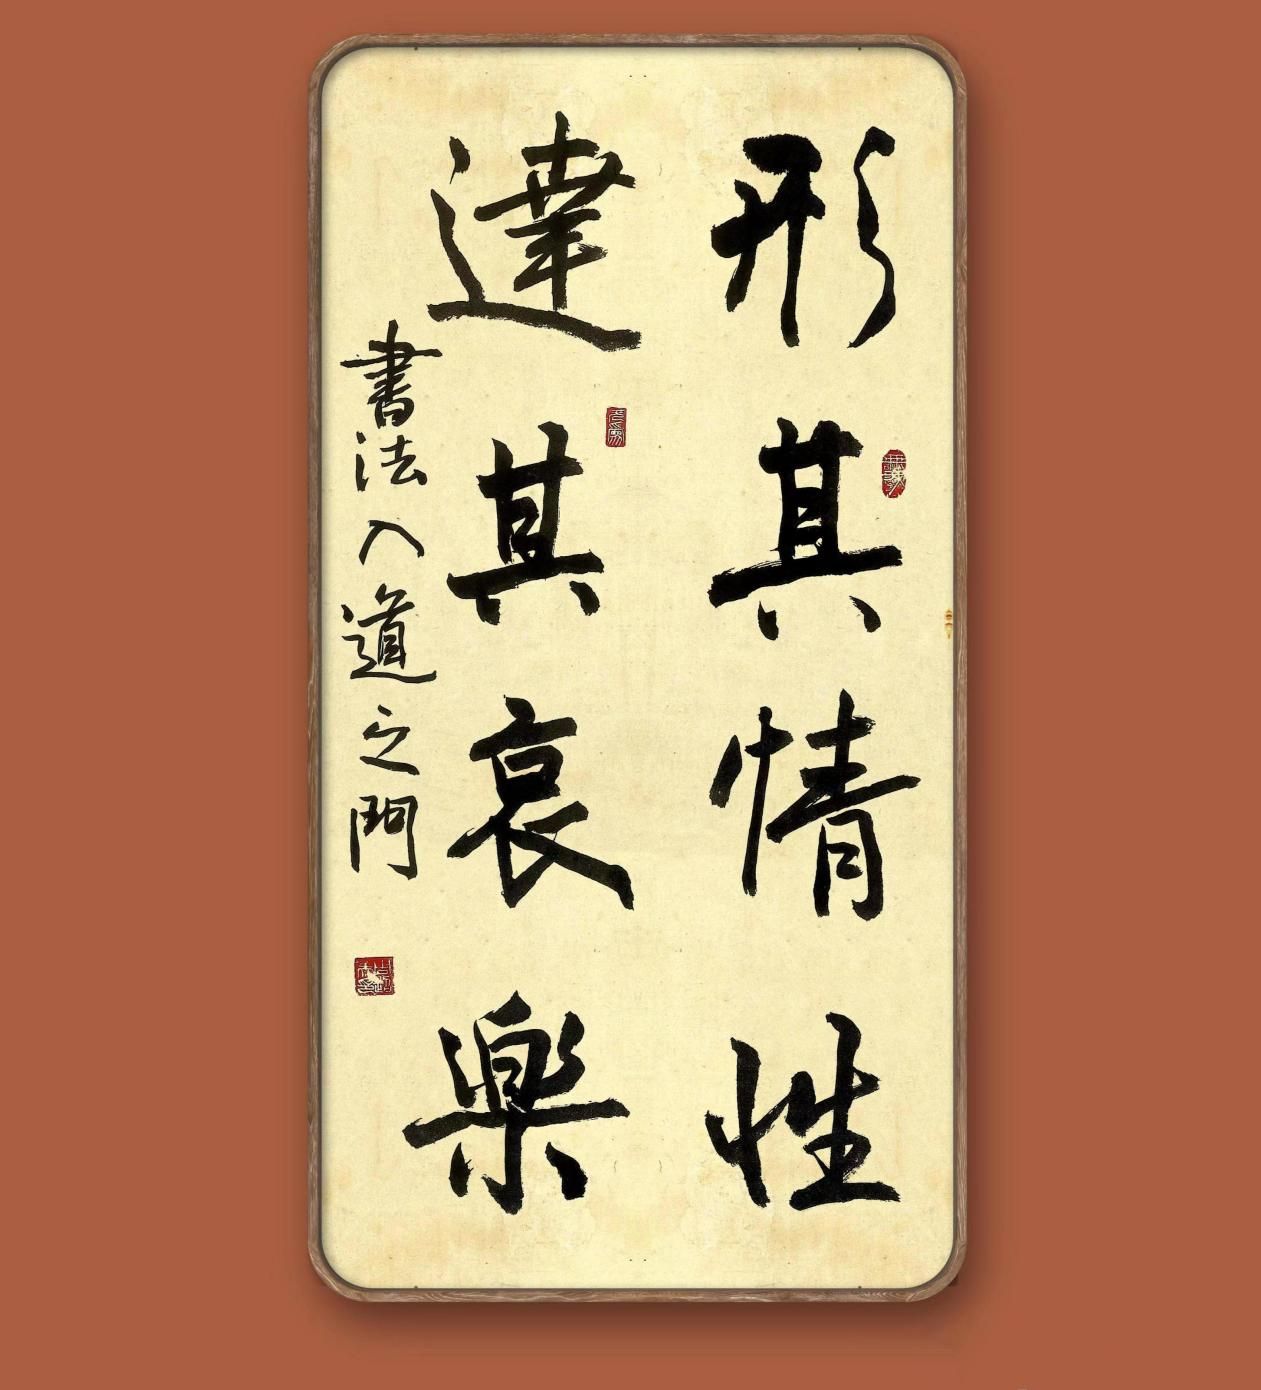 形其情性
達其哀樂
書法入道之門